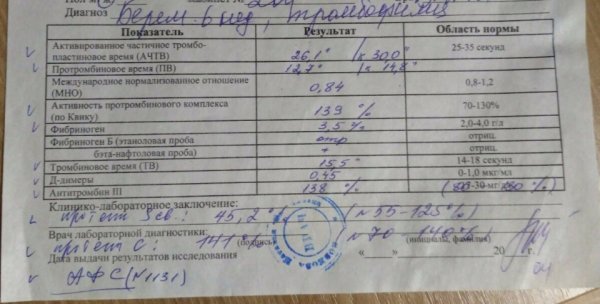 Диагноз Берем. 6 нед, тромбофилия
Показатель Результат Область нормы
Активированное частичное тромбо-
пластиновое время (АЧТВ) 26,1" (к 30,0" 25-35 секунд
Протромбиновое время (ПВ) 12,7" (к 14,8"
Международное нормализованное отношение
(МНО) 0,84 0,8-1,2
Активность протромбинового комплекса
(по Квику) 139 % 70-130%
Фибриноген 3,5 2,0-4,0 г/л
Фибриноген Б (этаноловая проба отр отриц.
бэта-нафтоловая проба) + отриц.
Тромбиновое время (ТВ) 15,5" 14-18 секунд
Д-димеры 0,45 0-1,0 мкг/мл
Антитромбин III 138 %
Клинико-лабораторное заключение:
протеин S св.: 45,2 % (N 55-125%)
Врач лабораторной диагностики:
протеин С: 141 % N 70-140%
(подпись) (инициалы, фамилия)
Дата выдачи результатов исследования « » 20 г.
АФС (N1131)